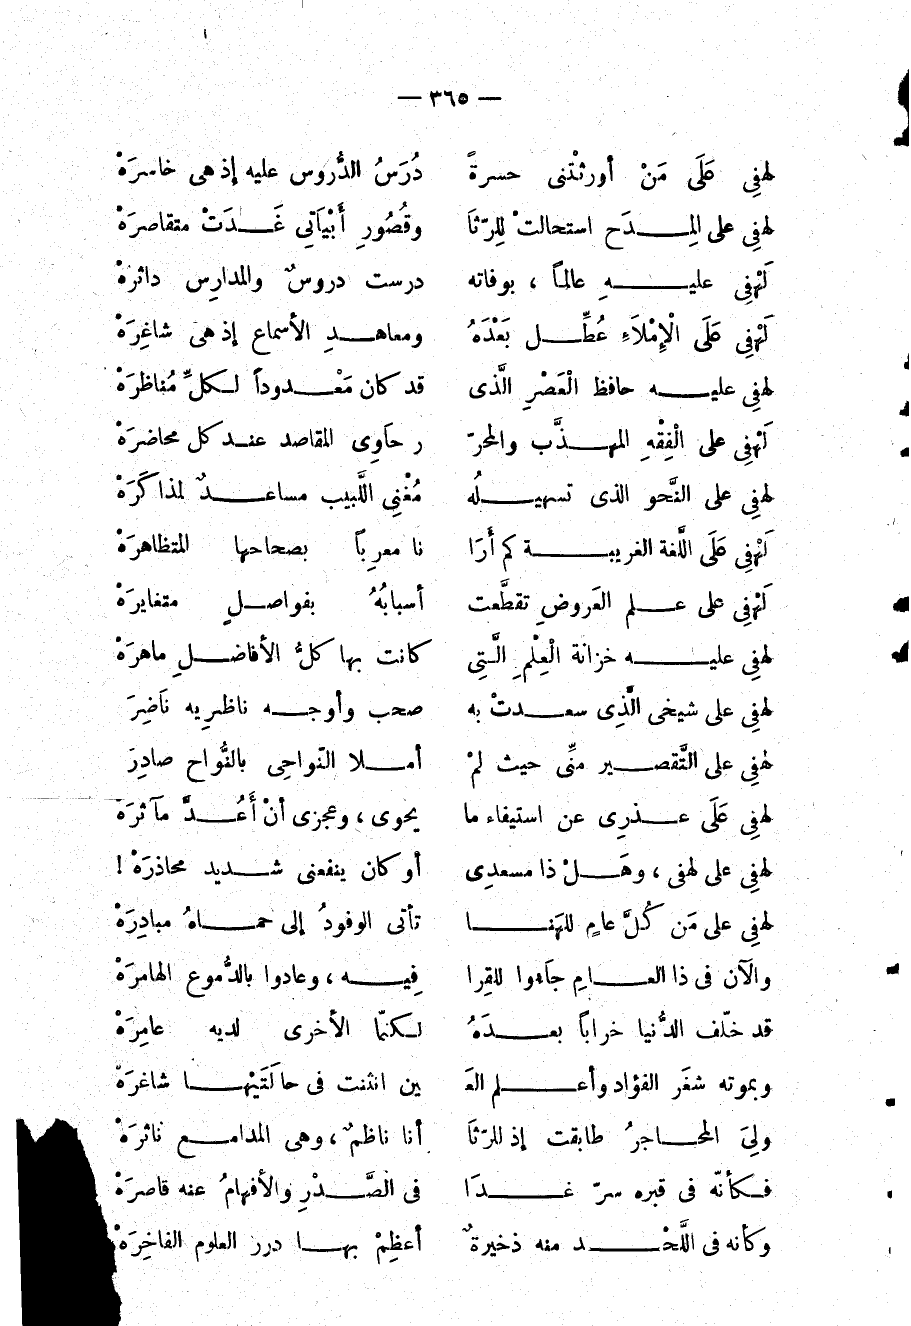 — ٣٦٥ —
لهفِي عَلَى مَنْ أورثتْنى حسرةً دُرَسُ الدُّروس عليه إذ هى خاسرَهْ
لهفِي على المِدَح استحالتْ للِرّثَا وقُصُورِ أَبْيَاتِى غَدَتْ متقاصرَهْ
لَهْفِي عليهِ عالماً ، بوفاته درست دروسٌ والمدارِس دائرَهْ
لَهْفِي عَلَى الْإِمْلَاءِ عُطِّل بَعْدَهُ ومعاهدِ الأسماع إذ هىَ شاغِرَهْ
لهفِي عليه حافظ الْعَصْرِ الَّذى قد كان مَعْدوداً لكلِّ مُناظرَهْ
لَهْفِي على الْفِقْهِ المهذَّب والمحرّ ر حاوِى المقاصد عند كل محاضرَهْ
لهفِي على النَّحو الذى تسهيلُه مُغْنِى اللَّبيب مساعدٌ لمذاكَرَهْ
لَهْفِي عَلَى اللَّغة الغريبة كم أَرَا نا معرِباً بصحاحها المتظاهرَهْ
لَهْفِي على علم العَروضِ تقطَّعت أسبابُهُ بفواصلٍ متغايرَهْ
لهفِي عليه خزانة الْعِلْمِ الَّتِى كانت بها كلُّ الأفاضلِ ماهرَهْ
لهفِي على شيخى الَّذِى سعدتْ به صحب وأوجه ناظرِيه نَاضِرَ
لهفِي على التَّقصير منِّى حيث لمْ أملا النّواحِى بالنُّواح صادِرَ
لهفِي عَلَى عذرِى عن استيفاء ما يحوى ، وعجزى أنْ أَعُدَّ مآثرَهْ
لهفِي على لهفى ، وهَلْ ذا مسعدِى أو كان ينفعنى شديد محاذرَهْ !
لهفِي على مَن كُلَّ عامٍ للهَنا تأتى الوفودُ إلى حماهُ مبادِرَهْ
والآن فى ذا العامِ جَاءوا للقِرا فِيه ، وعادوا بالدُّموع الهامرَهْ
قد خلّف الدُّنيا خراباً بعدَهُ لكنّما الأخرى لديه عامِرَهْ
وبموته شغَر الفؤاد وأعلم العَ ين انثنت فى حالَتَيْها شاغرَهْ
ولِىَ المحاجرُ طابقت إذ للرّثَا أنا ناظمٌ ، وهى المدامع ناثرَهْ
فكأنّه فى قبره سرّ غدَا فى الصَّدْرِ والأفهامُ عنه قاصرَهْ
وكأنه فى اللَّحْد منه ذخيرةٌ أعظِمْ بها درر العلوم الفاخِرَهْ